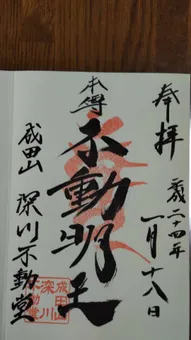 奉拝
二十四年
一月十八日
本尊
不動明王
成田山 深川不動堂
成田山
深川
不動堂